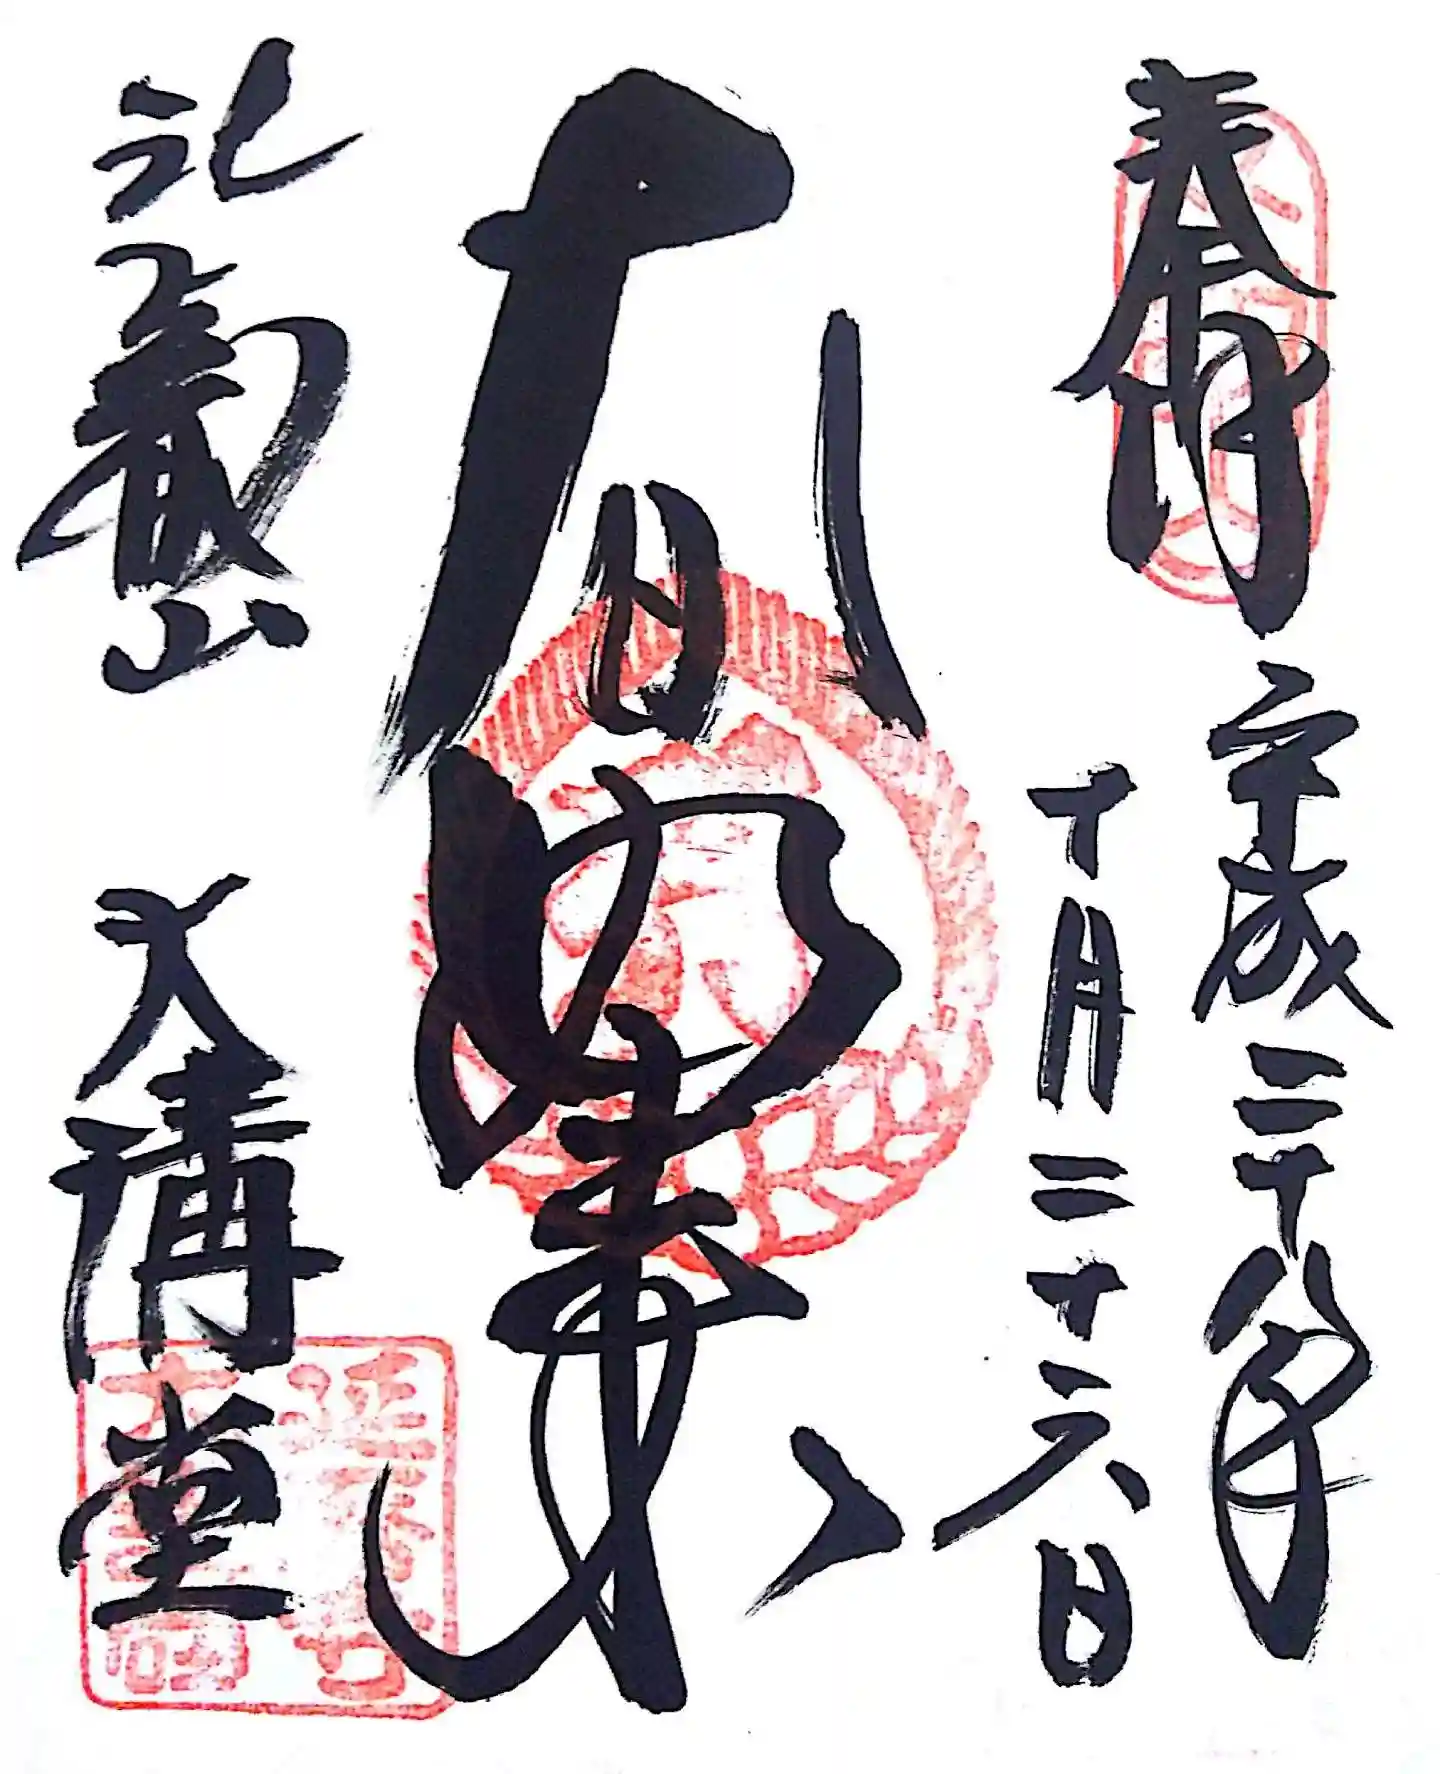 奉拝
平成三十年
十月二十六日
大日如来
比叡山 大講堂
延暦寺
大講堂印